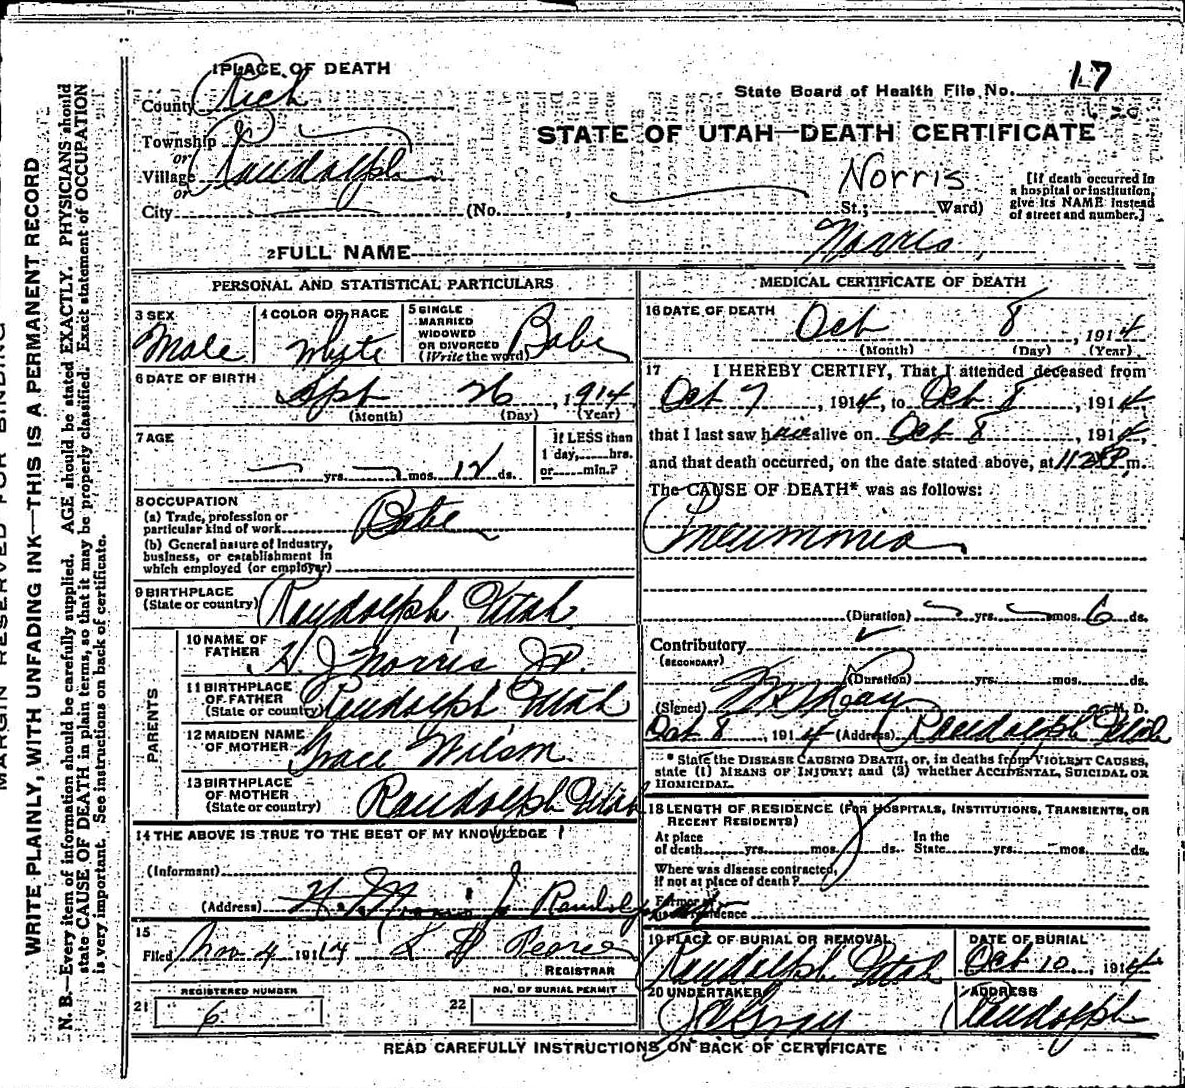 MARGIN RESERVED FOR BINDING
WRITE PLAINLY, WITH UNFADING INK—THIS IS A PERMANENT RECORD
N. B.—Every item of information should be carefully supplied. AGE should be stated EXACTLY. PHYSICIANS should
state CAUSE OF DEATH in plain terms, so that it may be properly classified. Exact statement of OCCUPATION
is very important. See instructions on back of certificate.
1 PLACE OF DEATH
County Rich
Township
or
Village Randolph
or
City
State Board of Health File No. 17
STATE OF UTAH—DEATH CERTIFICATE
Norris
(No. , St.; Ward)
[If death occurred in
a hospital or institution,
give its NAME instead
of street and number.]
2 FULL NAME Norris
PERSONAL AND STATISTICAL PARTICULARS
3 SEX
Male
4 COLOR OR RACE
Whyte
5 SINGLE
MARRIED
WIDOWED
OR DIVORCED
(Write the word) Babe
6 DATE OF BIRTH
Sept 26, 1914
(Month) (Day) (Year)
7 AGE
yrs. mos. 12 ds.
If LESS than
1 day, hrs.
or min.?
8 OCCUPATION
(a) Trade, profession or
particular kind of work Babe
(b) General nature of Industry,
business, or establishment in
which employed (or employer)
9 BIRTHPLACE
(State or country) Randolph Utah
PARENTS
10 NAME OF
FATHER H. J. Norris Jr.
11 BIRTHPLACE
OF FATHER
(State or country) Randolph Utah
12 MAIDEN NAME
OF MOTHER Grace Wilson
13 BIRTHPLACE
OF MOTHER
(State or country) Randolph Utah
14 THE ABOVE IS TRUE TO THE BEST OF MY KNOWLEDGE
(Informant)
(Address) H. J. Norris Jr Randolph
15
Filed Nov 4 1914
REGISTRAR
21 REGISTERED NUMBER
6
22 NO. OF BURIAL PERMIT
MEDICAL CERTIFICATE OF DEATH
16 DATE OF DEATH
Oct 8, 1914
(Month) (Day) (Year)
17 I HEREBY CERTIFY, That I attended deceased from
Oct 7, 1914, to Oct 8, 1914
that I last saw h alive on Oct 8, 1914,
and that death occurred, on the date stated above, at m.
The CAUSE OF DEATH* was as follows:
Pneumonia
(Duration) yrs. mos. 6 ds.
Contributory
(SECONDARY)
(Duration) yrs. mos. ds.
(Signed) M. D.
Oct 8, 1914 (Address) Randolph Utah
* State the DISEASE CAUSING DEATH, or, in deaths from VIOLENT CAUSES,
state (1) MEANS OF INJURY; and (2) whether ACCIDENTAL, SUICIDAL OR
HOMICIDAL.
18 LENGTH OF RESIDENCE (FOR HOSPITALS, INSTITUTIONS, TRANSIENTS, OR
RECENT RESIDENTS)
At place
of death yrs. mos. ds.
In the
State yrs. mos. ds.
Where was disease contracted,
if not at place of death?
Former or
usual residence
19 PLACE OF BURIAL OR REMOVAL
Randolph Utah
DATE OF BURIAL
Oct 10, 1914
20 UNDERTAKER
Gray
ADDRESS
Randolph
READ CAREFULLY INSTRUCTIONS ON BACK OF CERTIFICATE